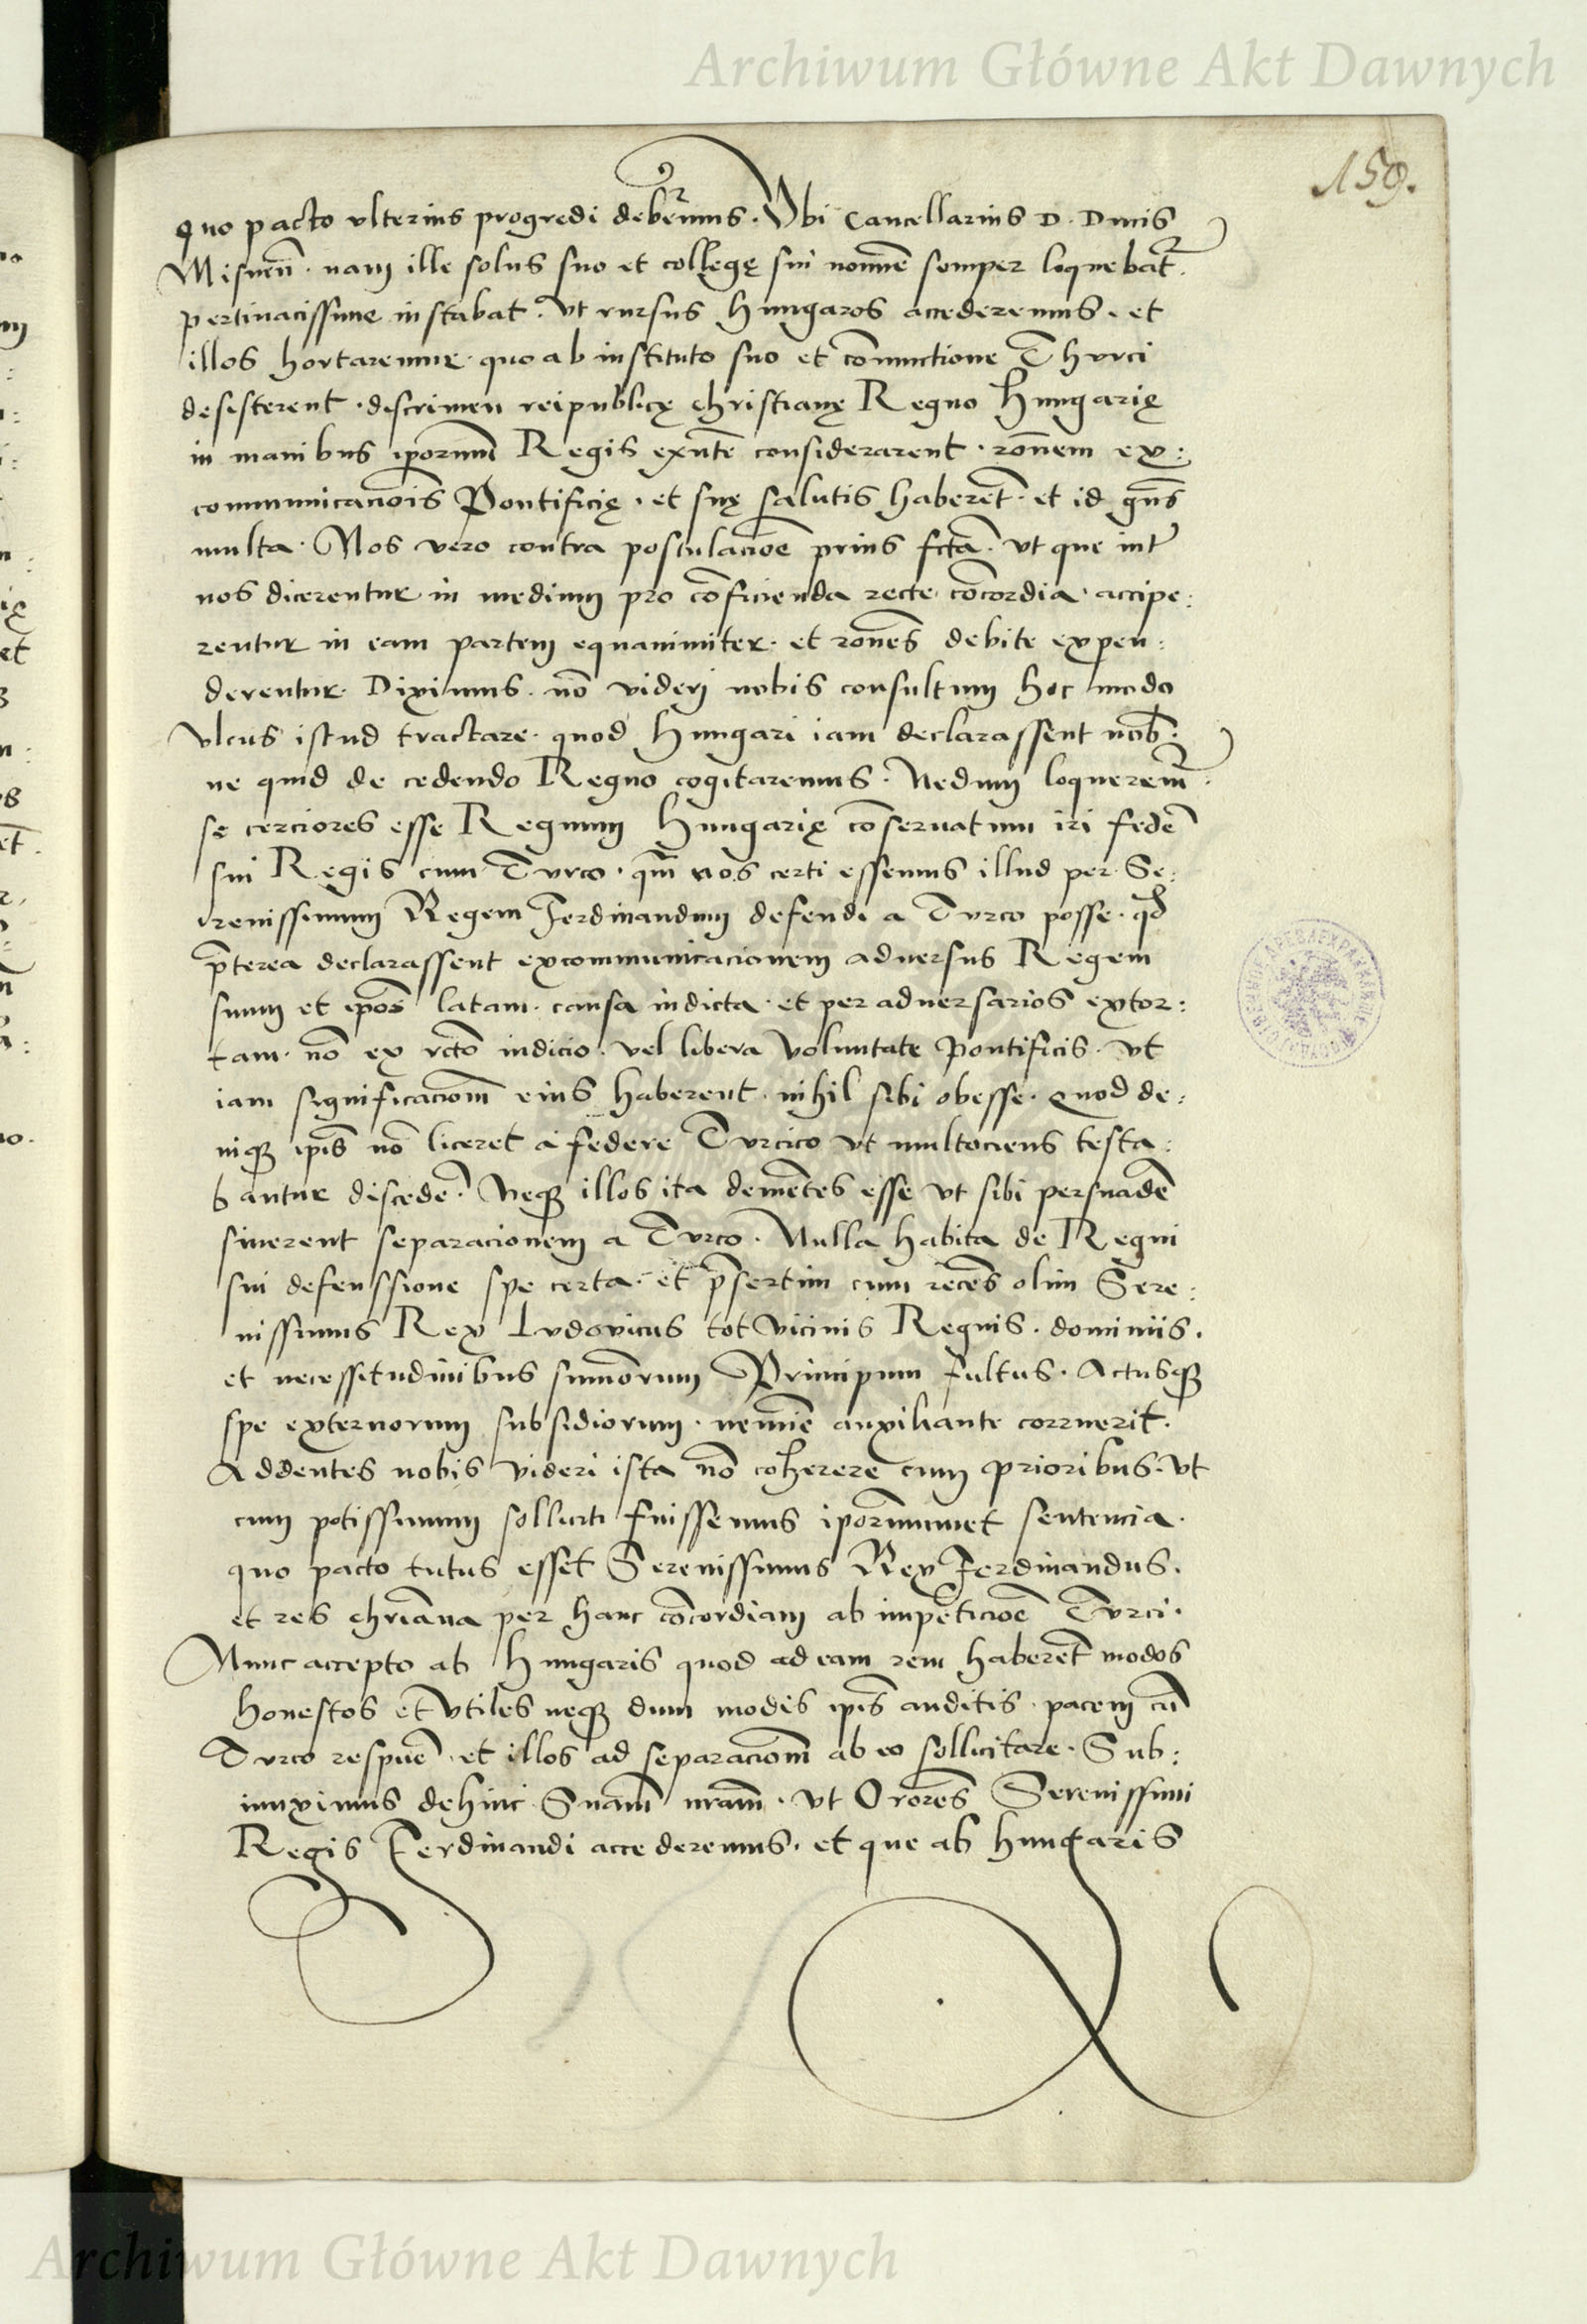 Archiwum Główne Akt Dawnych
159.
quo pacto vlterius progredi deberemus. Vbi Cancellarius D. Ducis
Misnen̄. nam ille solus suo et collegę sui nomīe semper loquebat̄.
pertinacissime instabat. vt rursus Hungaros accederemus. et
illos hortaremur. quo ab instituto suo et cōiunctione Thurci
desisterent. discrimen reipublicę christianę Regno Hungarię
in manibus ip̄orum Regis exn̄te considerarent. rōnem ex:
communicacōis Pontificię. et suę salutis haberent. et id gn̄s
multa. Nos vero contra postulacōe prius fcta. vt que int̄
nos dicerentur in medium pro cōficienda recte cōcordia. accipe:
rentur in eam partem equanimiter. et rōnes debite expen:
derentur. Diximus. nō videri nobis consultum hoc modo
vlcus istud tractare. quod Hungari iam declarassent nob̄.
ne quid de cedendo Regno cogitaremus. Nedum loquerem̄.
se cerciores esse Regnum Hungarię cōseruatum iri fedē
sui Regis cum Turco. qm̄ nos certi essemus illud per Se:
renissimum Regem Ferdinandum defendi a Turco posse. qd̄
p̄terea declarassent excommunicacionem aduersus Regem
suum et ip̄os latam. causa indicta. et per aduersarios extor:
tam. nō ex rcto iudicio. vel libera voluntate Pontificis. vt
iam significacōm eius haberent. nihil sibi obesse. Quod de:
niqꝫ ip̄is nō liceret a federe Turcico vt multociens testa:
bantur discedē. Neqꝫ illos ita demētes esse vt sibi persuadē
sinerent separacionem a Turco. Nulla habita de Regni
sui defenssione spe certa. et p̄sertim cum recēs olim Sere:
nissimus Rex Ludovicus tot vicinis Regnis. dominiis.
et necessitudinibus sum̄orum Principum fultus. Actusqꝫ
spe externorum subsidiorum. nemīe auxiliante corruerit.
Addentes nobis videri ista nō coherere cum prioribus. vt
cum potissimum solliciti fuissemus ip̄orummet sentencia.
quo pacto tutus esset Serenissimus Rex Ferdinandus.
et res chriāna per hanc cōcordiam ab impeticiōe Turci.
Nunc accepto ab Hungaris quod ad eam rem haberent modos
honestos et vtiles neqꝫ dum modis ip̄is auditis. pacem cū
Turco respuē. et illos ad separacōm ab eo sollicitare. Sub:
iunximus dehinc Snām nrām. vt Orōres Serenissimi
Regis Ferdinandi accederemus. et que ab hungaris
Archiwum Główne Akt Dawnych